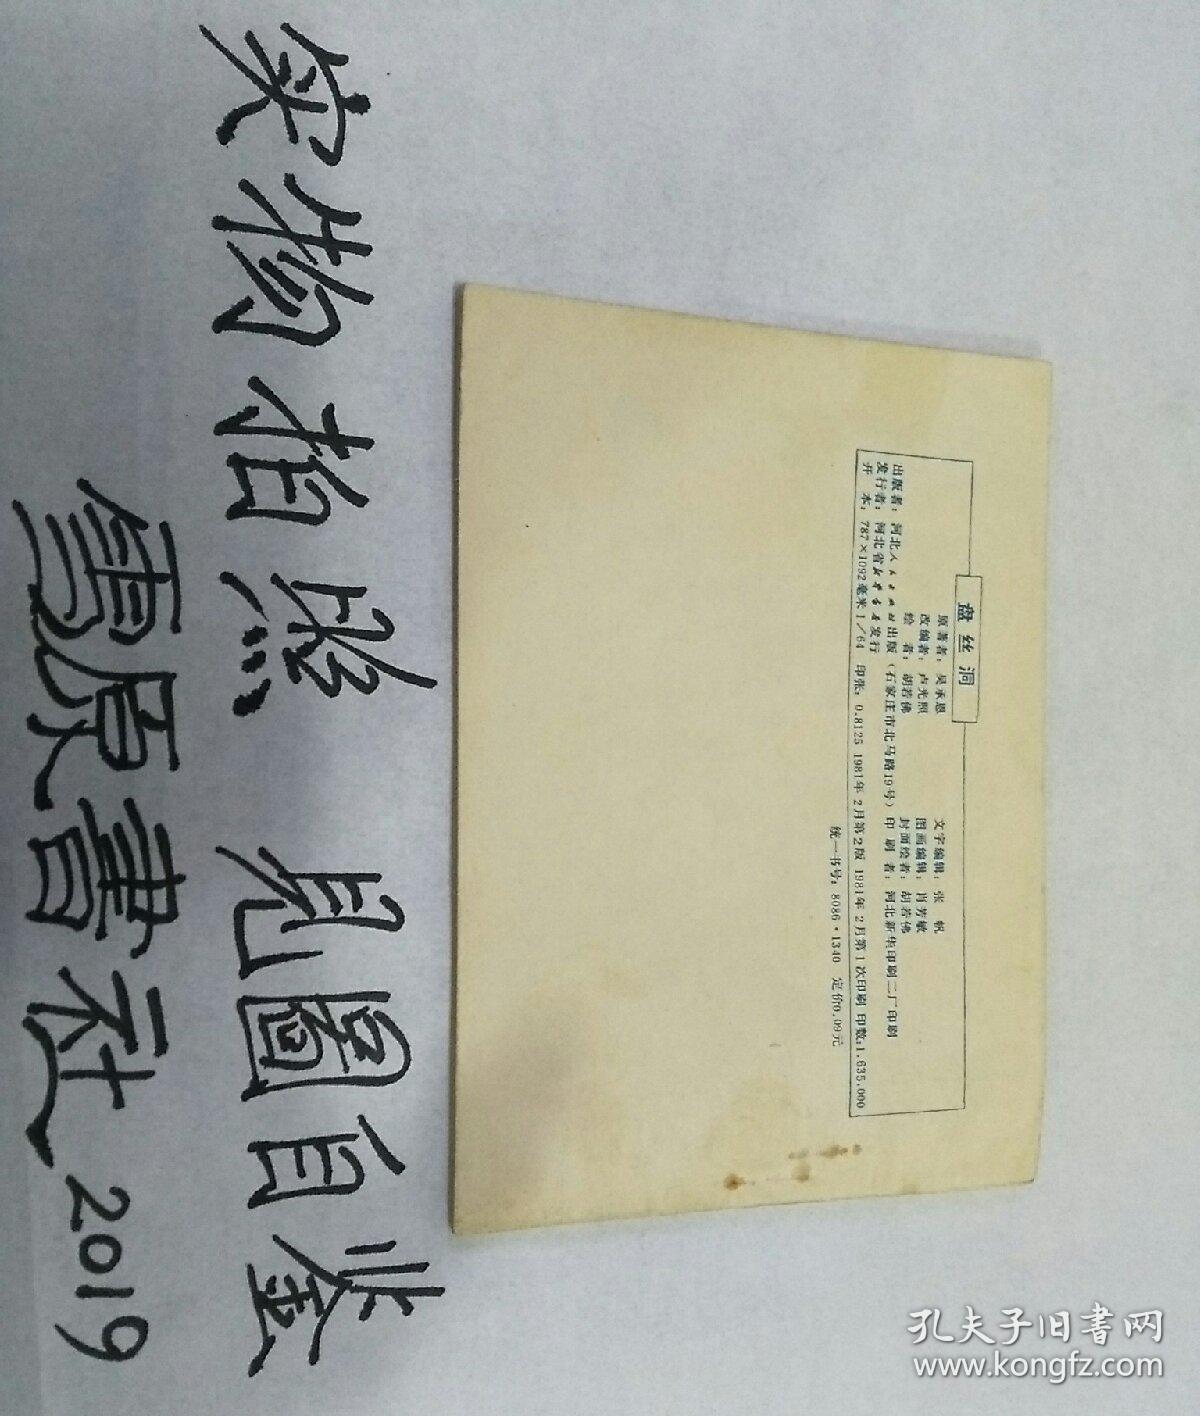 实物拍照 見圖自鉴
雪原書社 2019
盘丝洞
原著者：吴承恩 文字编辑：张帆
改编者：卢光照 图画编辑：肖芳敏
绘者：胡若佛 封面绘者：胡若佛
出版者：河北人民出版社出版（石家庄市北马路19号）印刷者：河北新华印刷二厂印刷
发行者：河北省新华书店发行
开本：787×1092毫米1/64 印张：0.8125 1981年2月第2版 1981年2月第1次印刷 印数：1,635,000
统一书号：8086·1340 定价0.09元
孔夫子旧書网
www.kongfz.com